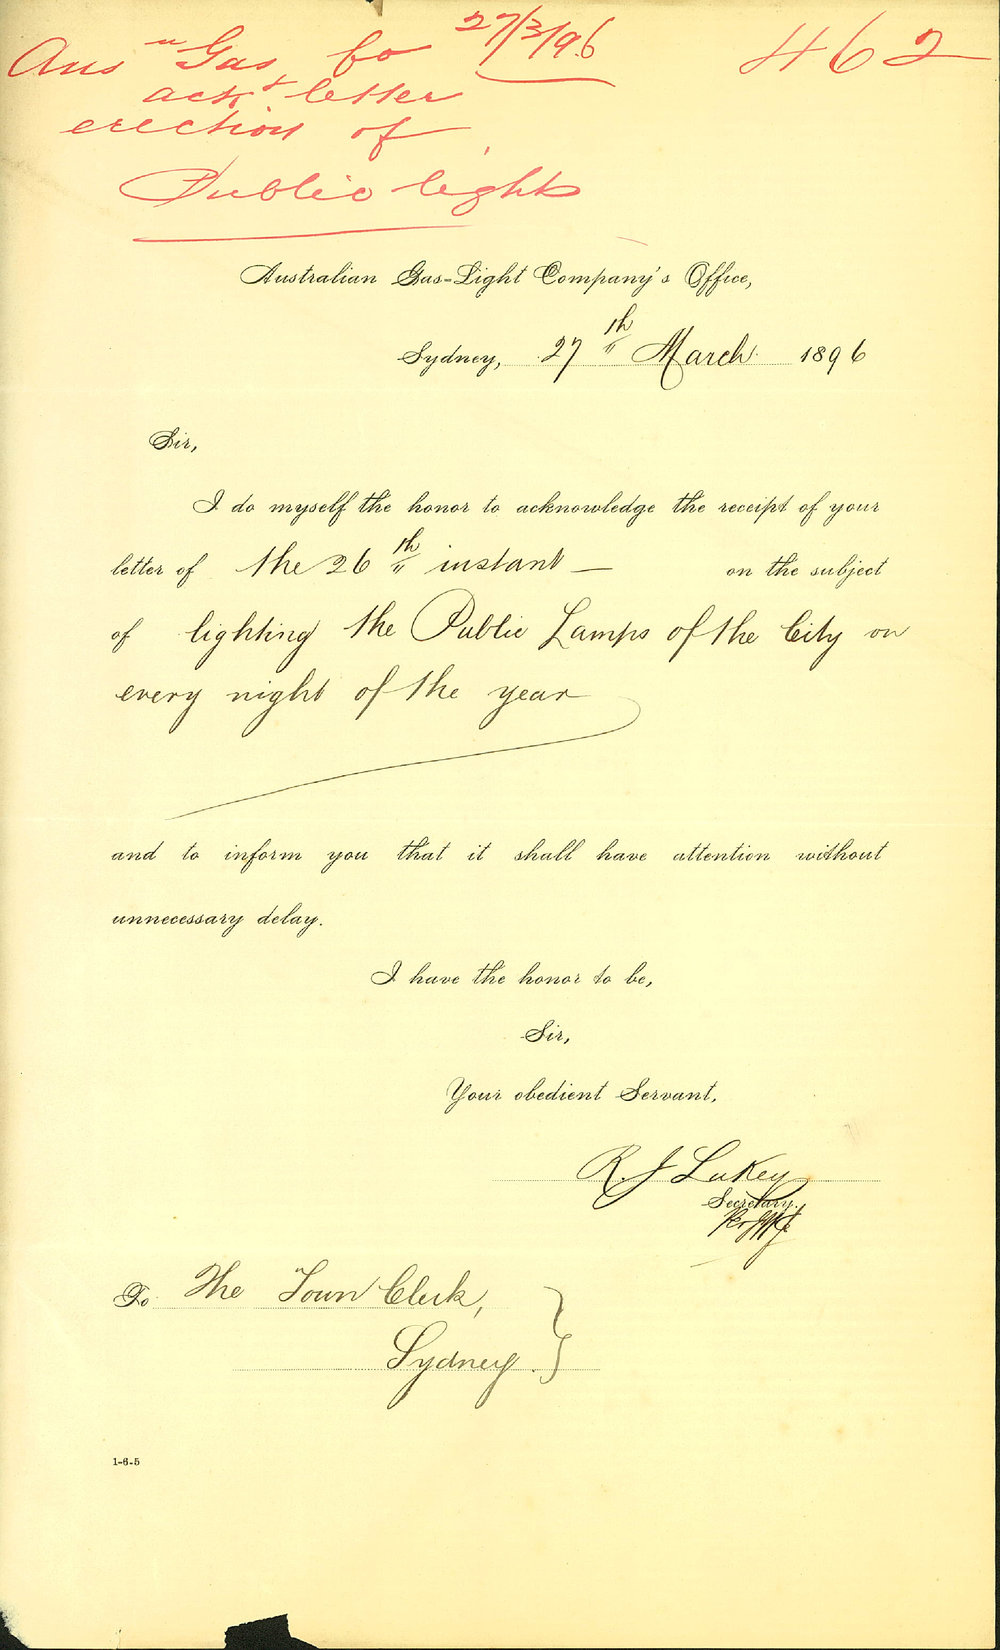 Ausn Gas Co 27/3/96 462
ackt letter
erection of
Public lights
Australian Gas-Light Company's Office,
Sydney, 27th March 1896
Sir,
I do myself the honor to acknowledge the receipt of your
letter of the 26th instant — on the subject
of lighting the Public Lamps of the City on
every night of the year
and to inform you that it shall have attention without
unnecessary delay.
I have the honor to be,
Sir,
Your obedient Servant,
R. J Lukey
Secretary.
To The Town Clerk,
Sydney.
1-6-5